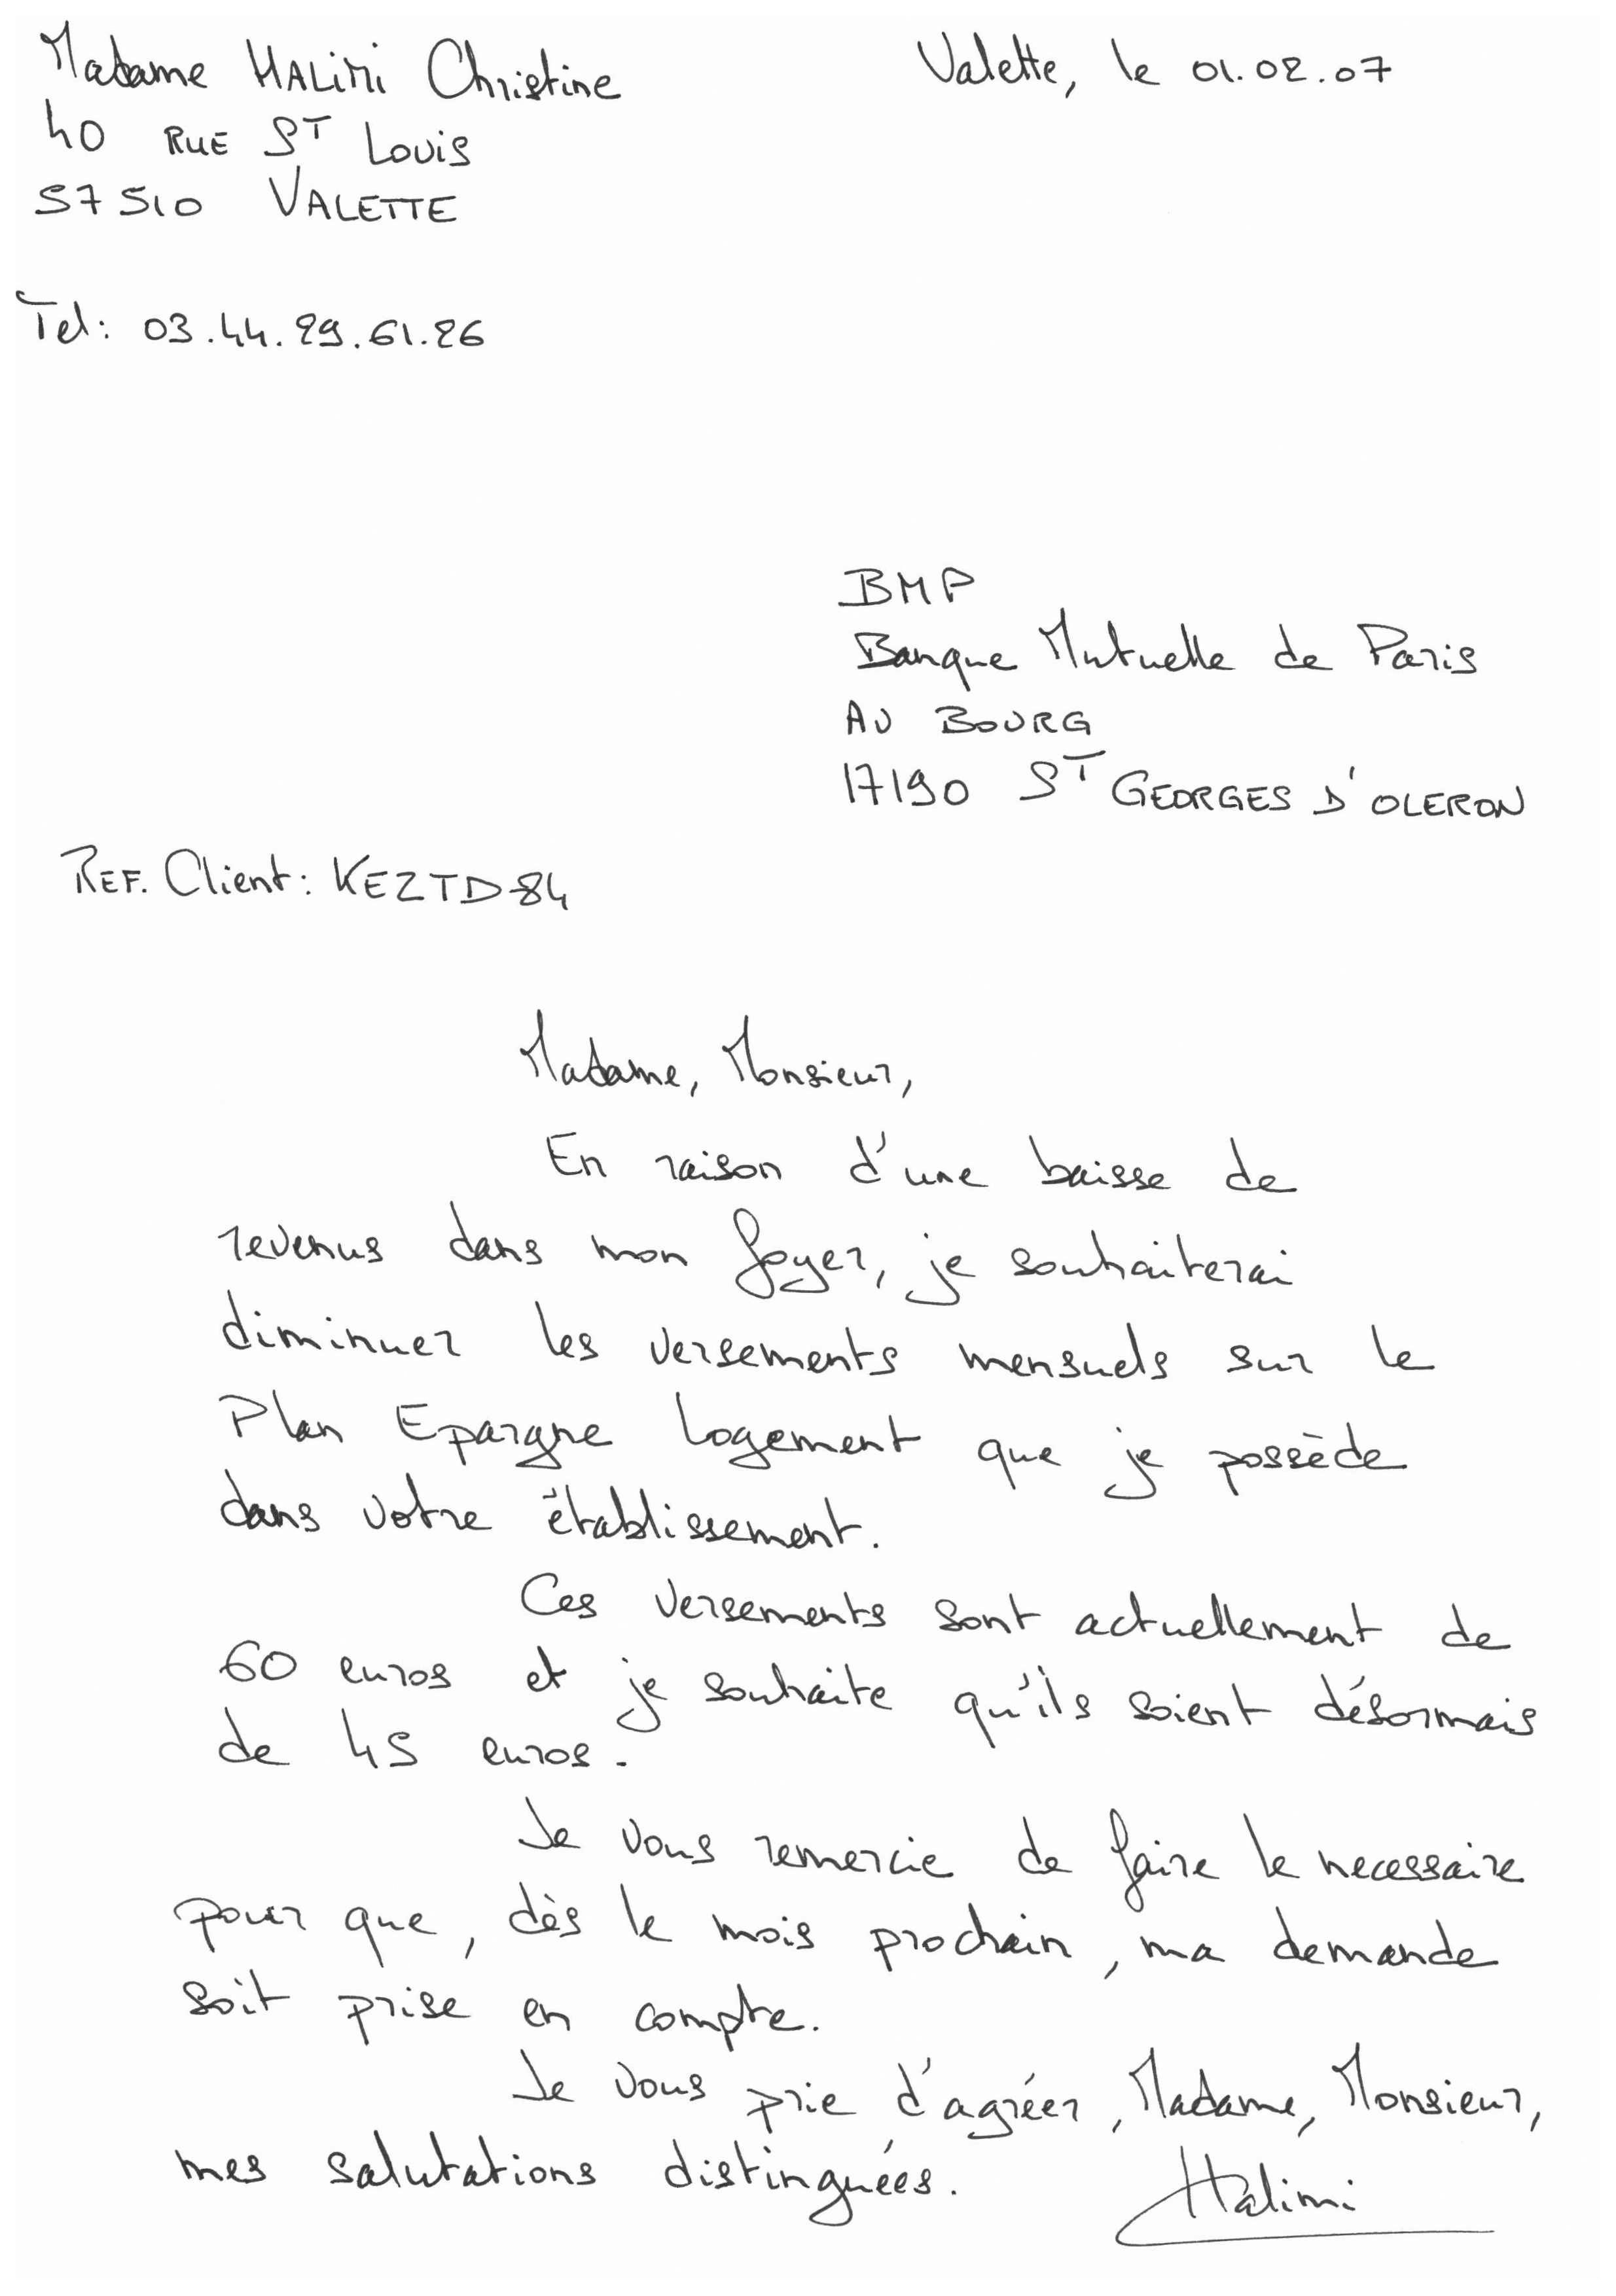 Madame HALIMI Christine
Valette, le 01.02.07
40 RUE ST Louis
57510 VALETTE
Tel: 03.44.29.61.26
BMP
Banque Mutuelle de Paris
AU BOURG
17190 ST GEORGES D'OLERON
REF. Client: KEZTD84
Madame, Monsieur,
En raison d'une baisse de
revenus dans mon foyer, je souhaiterai
diminuer les versements mensuels sur le
Plan Epargne Logement que je possède
dans votre établissement.
Ces versements sont actuellement de
60 euros et je souhaite qu'ils soient désormais
de 45 euros.
Je vous remercie de faire le necessaire
pour que, dès le mois prochain, ma demande
soit prise en compte.
Je vous prie d'agréer, Madame, Monsieur,
mes salutations distinguées.
Halimi